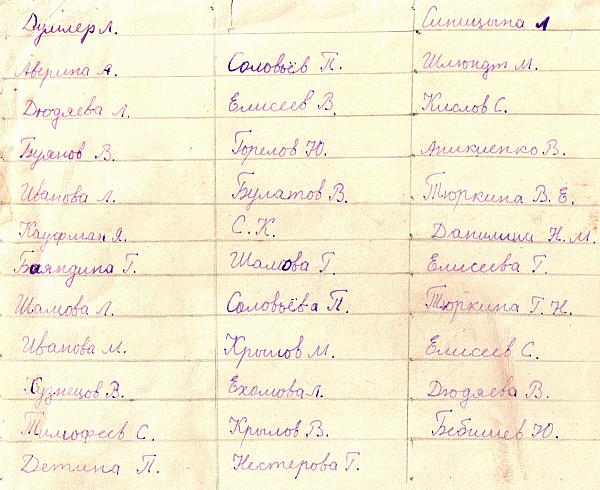 Думлер Л.
Аверина А.
Дюдяева Л.
Буянов В.
Иванова Л.
Кауфман Я.
Баяндина Г.
Шамова Л.
Иванова М.
Кузнецов В.
Тимофеев С.
Детина П.
Соловьёв П.
Елисеев В.
Горелов Ю.
Булатов В.
С. К.
Шамова Г.
Соловьёва П.
Крылов М.
Ехомова Л.
Крылов В.
Нестерова Г.
Синицына Л
Шмюндт М.
Кислов С.
Аникиенко В.
Тюркина В. Е.
Данилина Н. М.
Елисеева Г.
Тюркина Г. Н.
Елисеев С.
Дюдяева В.
Бебишев Ю.